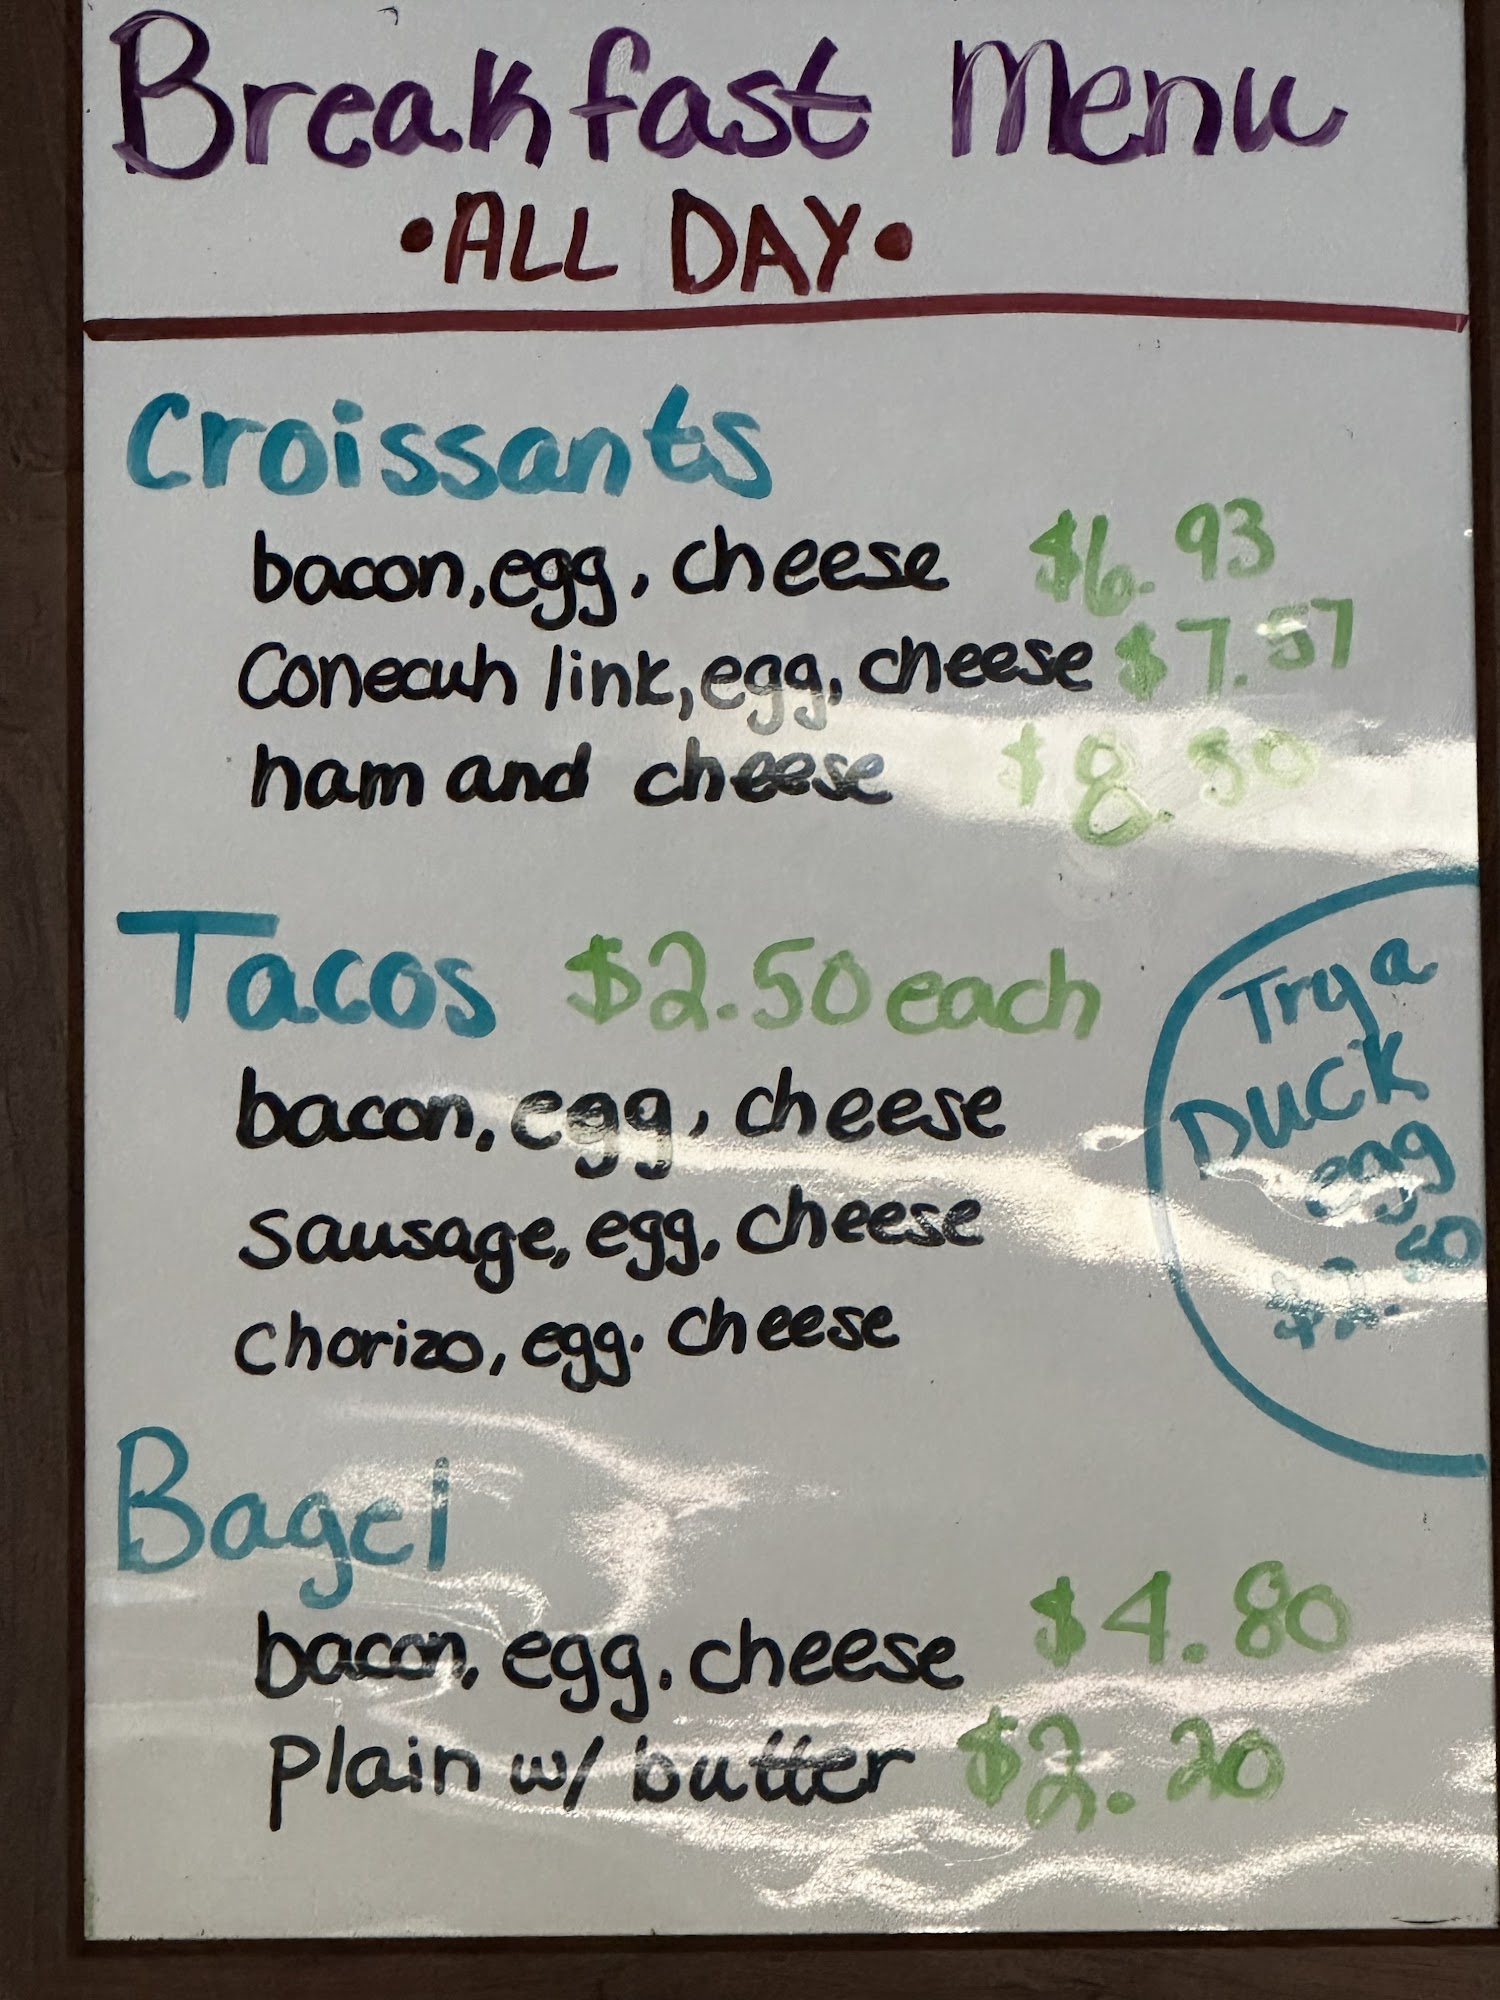 Breakfast Menu
•ALL DAY•
Croissants
bacon, egg, cheese $6.93
Conecuh link, egg, cheese $7.57
ham and cheese $8.50
Tacos $2.50 each
bacon, egg, cheese
sausage, egg, cheese
chorizo, egg, cheese
Try a
DUCK
egg
Bagel
bacon, egg, cheese $4.80
plain w/ butter $2.20